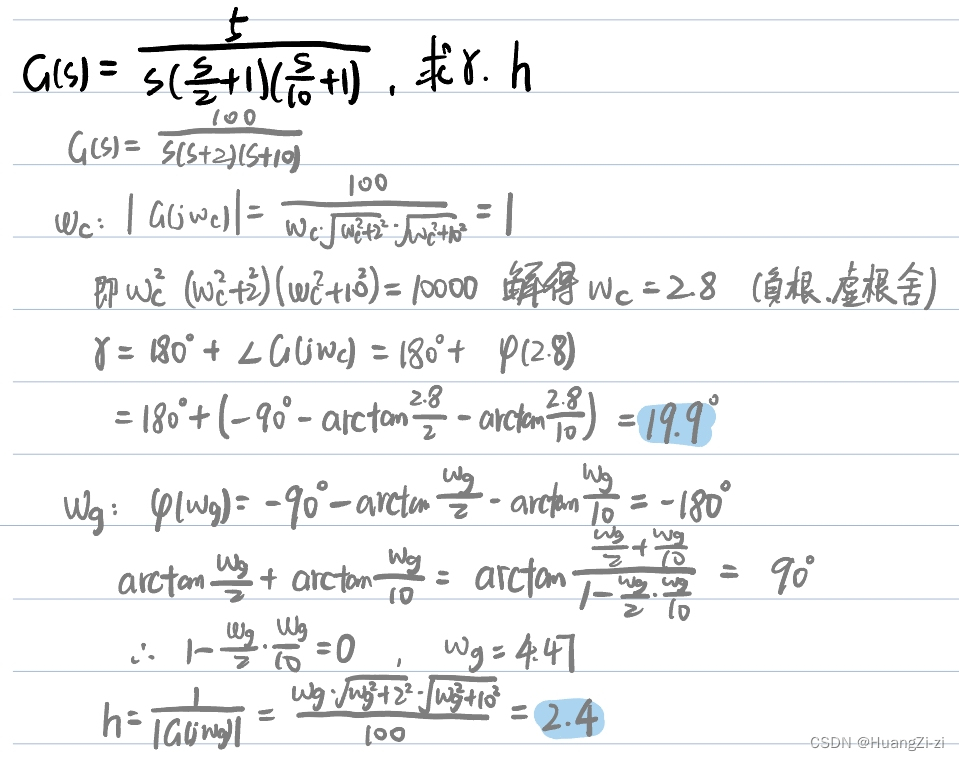 G(s) = 5 / (s(s/2+1)(s/10+1)) , 求γ. h
G(s) = 100 / (s(s+2)(s+10))
ωc: |G(jωc)| = 100 / (ωc·√(ωc²+2²)·√(ωc²+10²)) = 1
即 ωc² (ωc²+2²)(ωc²+10²) = 10000 解得 ωc = 2.8 (負根、虛根舍)
γ = 180° + ∠G(jωc) = 180° + φ(2.8)
= 180° + (-90° - arctan 2.8/2 - arctan 2.8/10) = 19.9°
ωg: φ(ωg) = -90° - arctan ωg/2 - arctan ωg/10 = -180°
arctan ωg/2 + arctan ωg/10 = arctan (ωg/2 + ωg/10) / (1 - ωg/2 · ωg/10) = 90°
∴ 1 - ωg/2 · ωg/10 = 0 , ωg = 4.47
h = 1 / |G(jωg)| = ωg·√(ωg²+2²)·√(ωg²+10²) / 100 = 2.4
CSDN @HuangZi-zi